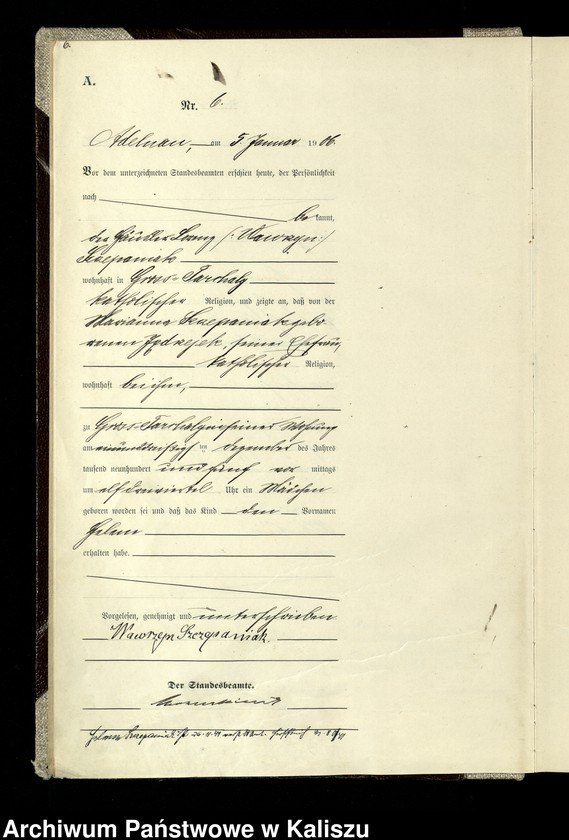 6.
A.
Nr. 6.
Adelnau, am 5. Januar 1906.
Vor dem unterzeichneten Standesbeamten erschien heute, der Persönlichkeit
nach
bekannt,
der Häusler Lorenz (: Wawrzyn :)
Szczepaniak
wohnhaft in Gross-Tarchaly
katholischer Religion, und zeigte an, daß von der
Marianna Szczepaniak gebo-
renen Jędrzejek, seiner Ehefrau,
katholischer Religion,
wohnhaft bei ihm,
zu Gross-Tarchaly in seiner Wohnung
am einunddreißigsten Dezember des Jahres
tausend neunhundert und fünf vormittags
um elf dreiviertel Uhr ein Mädchen
geboren worden sei und daß das Kind den Vornamen
Helene
erhalten habe.
Vorgelesen, genehmigt und unterschrieben
Wawrzyn Szczepaniak
Der Standesbeamte.
Archiwum Państwowe w Kaliszu